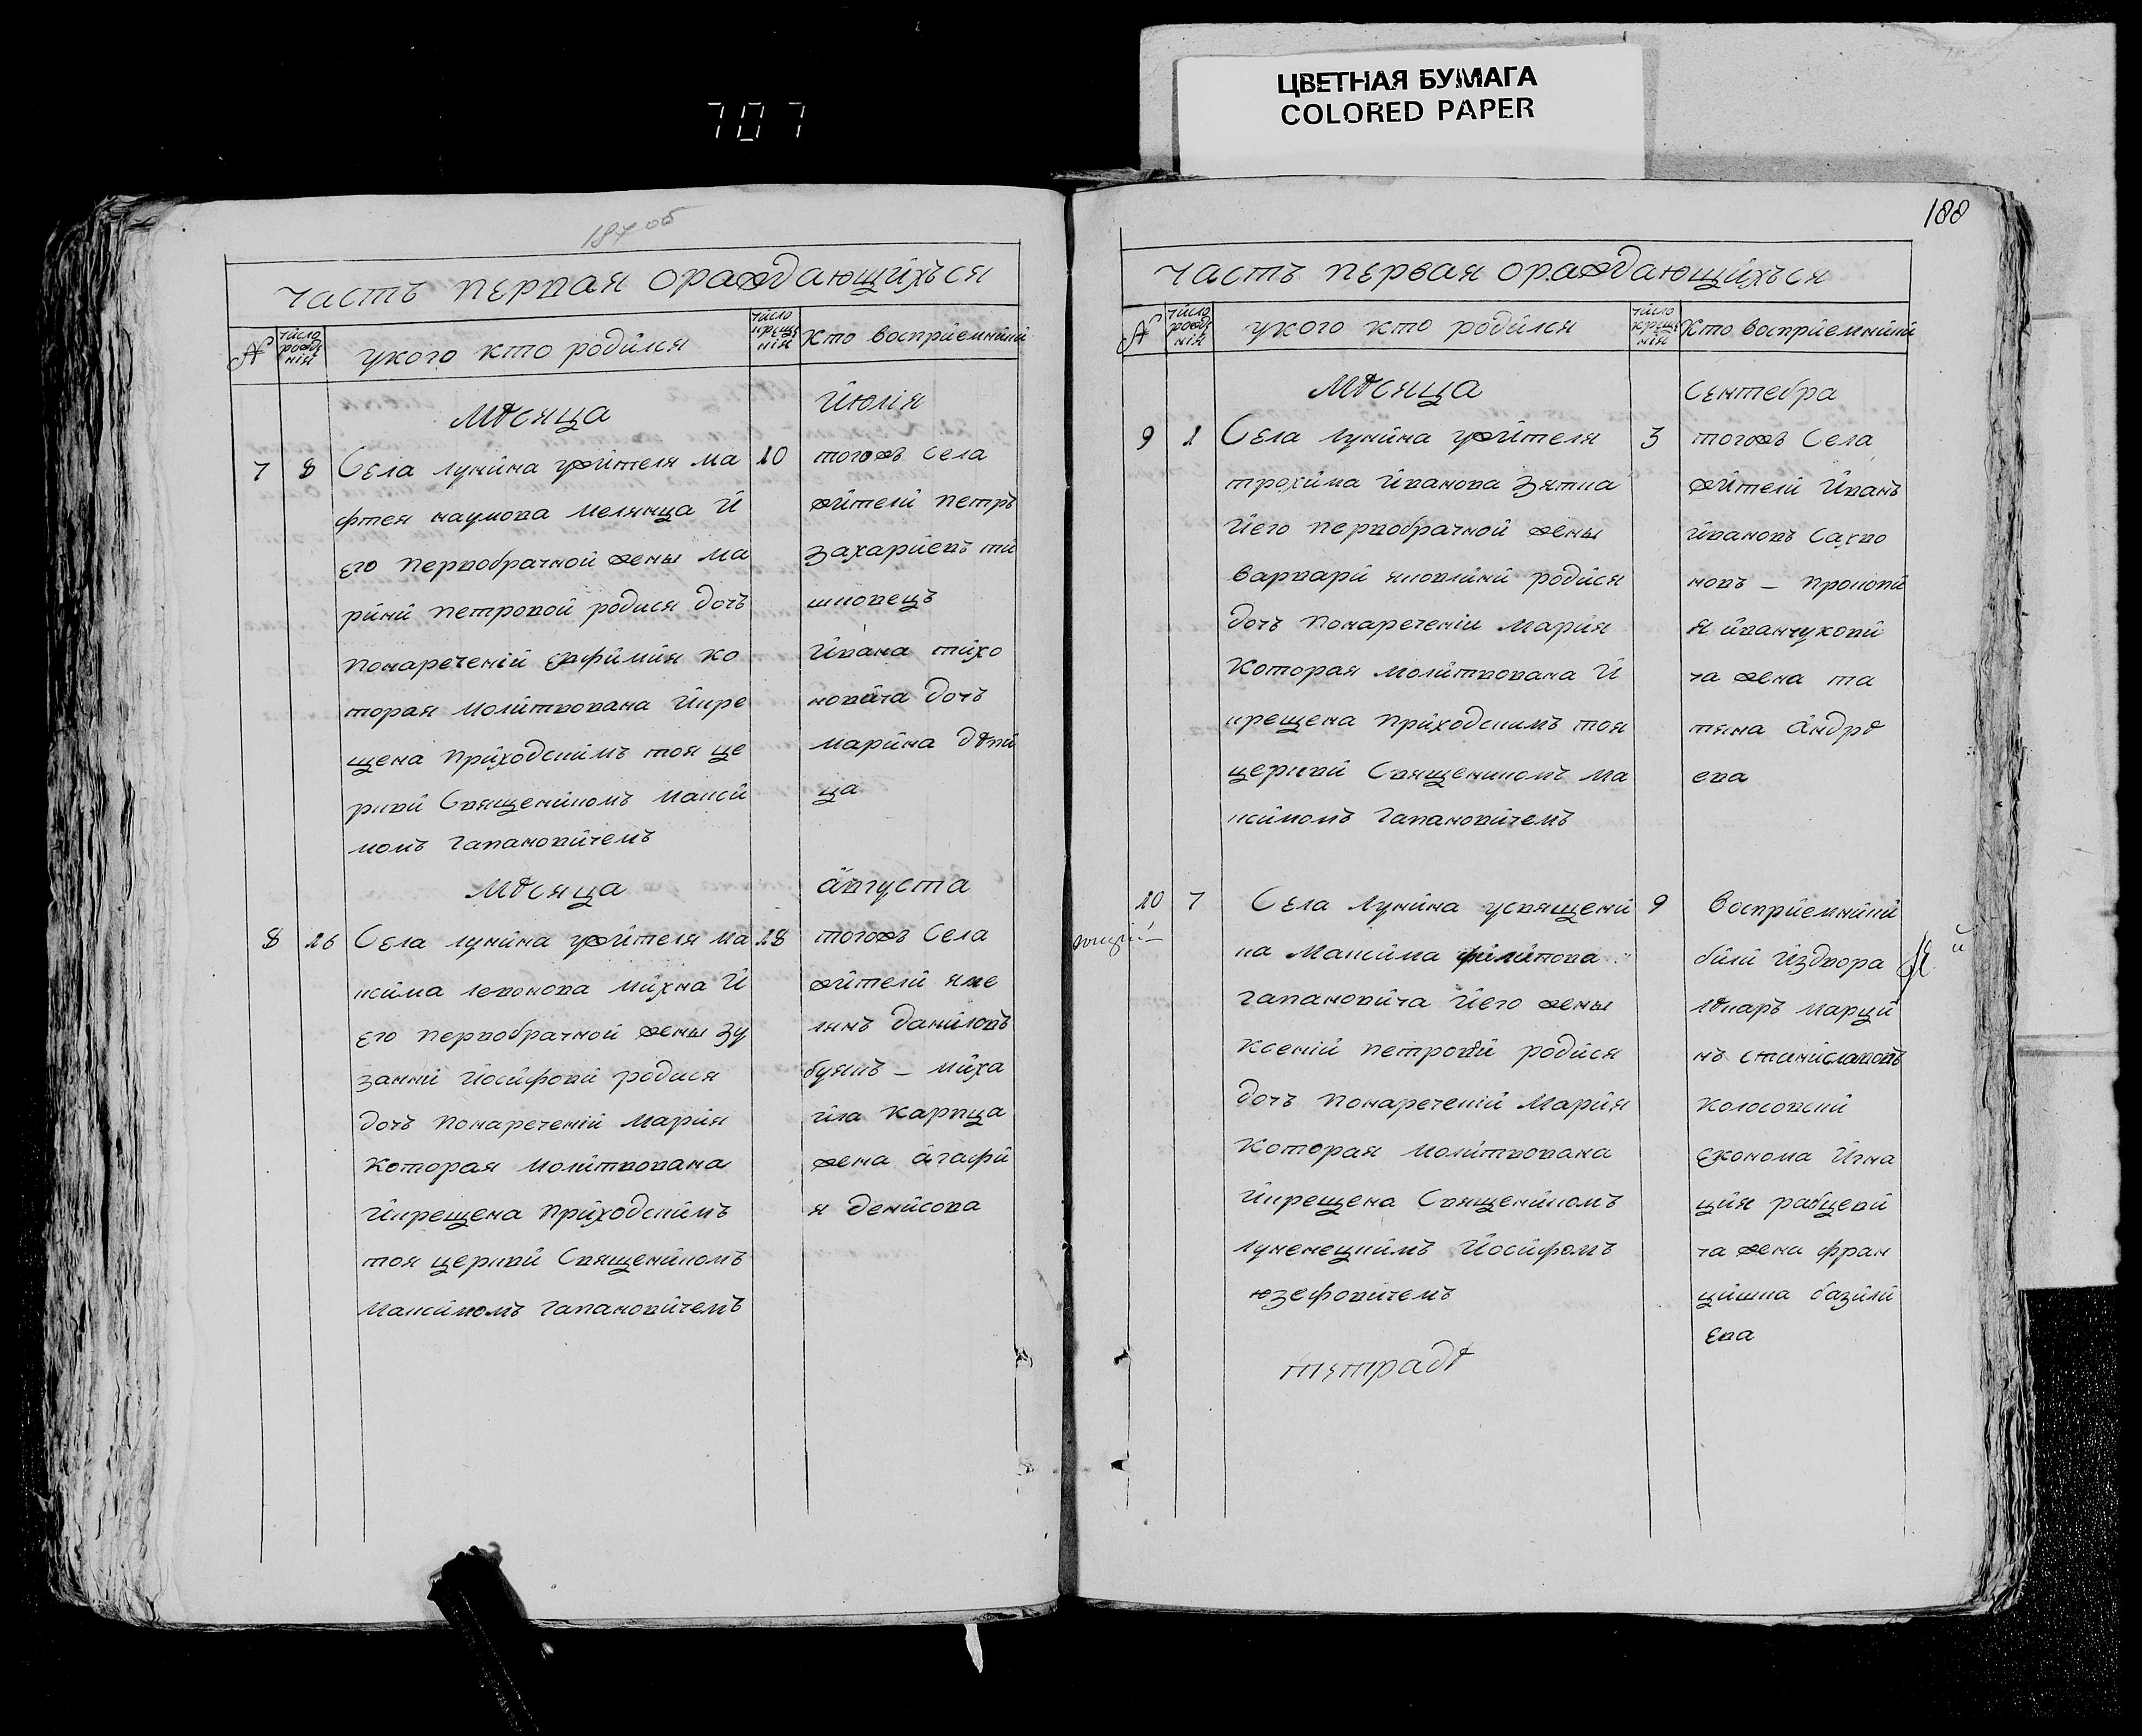 707
ЦВЕТНАЯ БУМАГА
COLORED PAPER
187об
часть первая ораждающихъся
№
число рожде нія
укого кто родился
число креще нія
кто восприемники
Мѣсяца
Июлія
7 8 Села лунина ужителя ма 10
фтея наумова мелянца И
его первобрачной жены ма
рини петровой родися дочъ
понареченій евфимия ко
торая молитвована икре
щена приходскимъ тоя це
рквй Священикомъ макси
момъ гапановичемъ
тогожъ села
жители петръ
захариевъ ти
шковецъ
Ивана тихо
новича дочъ
марина дѣви
ца
Мѣсяца
августа
8 26 Села лунина ужителя ма 28
ксима левонова михна И
его первобрачной жены зу
занни Иосифови родися
дочъ понареченій Мария
Которая молитвована
Икрещена приходскимъ
тоя церкви Священикомъ
Максимомъ гапановичемъ
тогожъ Села
жители яке
лимъ даниловъ
буякъ – миха
йла карпца
жена агафи
я денисова
188
часть первая ораждающихъся
№
число рожде нія
укого кто родился
число креще нія
Кто восприемники
Мѣсяца
Сентебра
9 1 Села лунина ужителя 3
трохима иванова зятка
Иего первобрачной жены
варвари яковлини родися
дочъ понареченіи мария
Которая молитвована И
крещена приходскимъ тоя
церкви Священикомъ ма
ксимомъ гапановичемъ
тогожъ Села
жители Иванъ
ивановъ Сахно
новъ – прокопи
я иванчукови
ча жена та
тяна Андрѣ
ева
10 7 Села лунина усвящени 9
ка Максима филипова
гапановича Иего жены
Ксений петрови родися
дочъ понареченій Мария
Которая молитвована
Икрещена Священикомъ
лунинецкимъ Иосифомъ
юзефовичемъ
Восприемники
били Издвора
лѣкаръ марци
нъ станиславовъ
колосовский
економа Игна
ция рабцеви
ча жена фран
цишка базили
ева
тетрадѣ